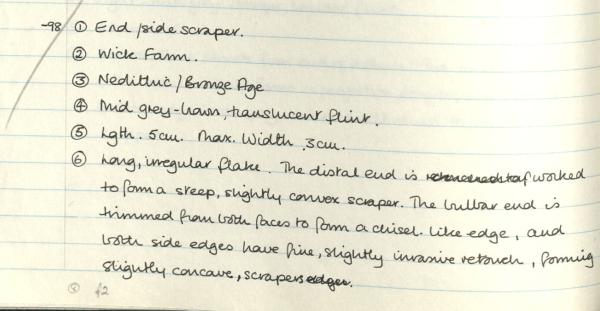 -98 ① End/side scraper.
② Wick Farm.
③ Neolithic/Bronze Age
④ Mid grey-brown, translucent flint.
⑤ Lgth. 5cm. Max. Width 3cm.
⑥ Long, irregular flake. The distal end is worked
to form a steep, slightly convex scraper. The bulbar end is
trimmed from both faces to form a chisel-like edge, and
both side edges have fine, slightly invasive retouch, forming
slightly concave, scrapers edges.
⑧ f2